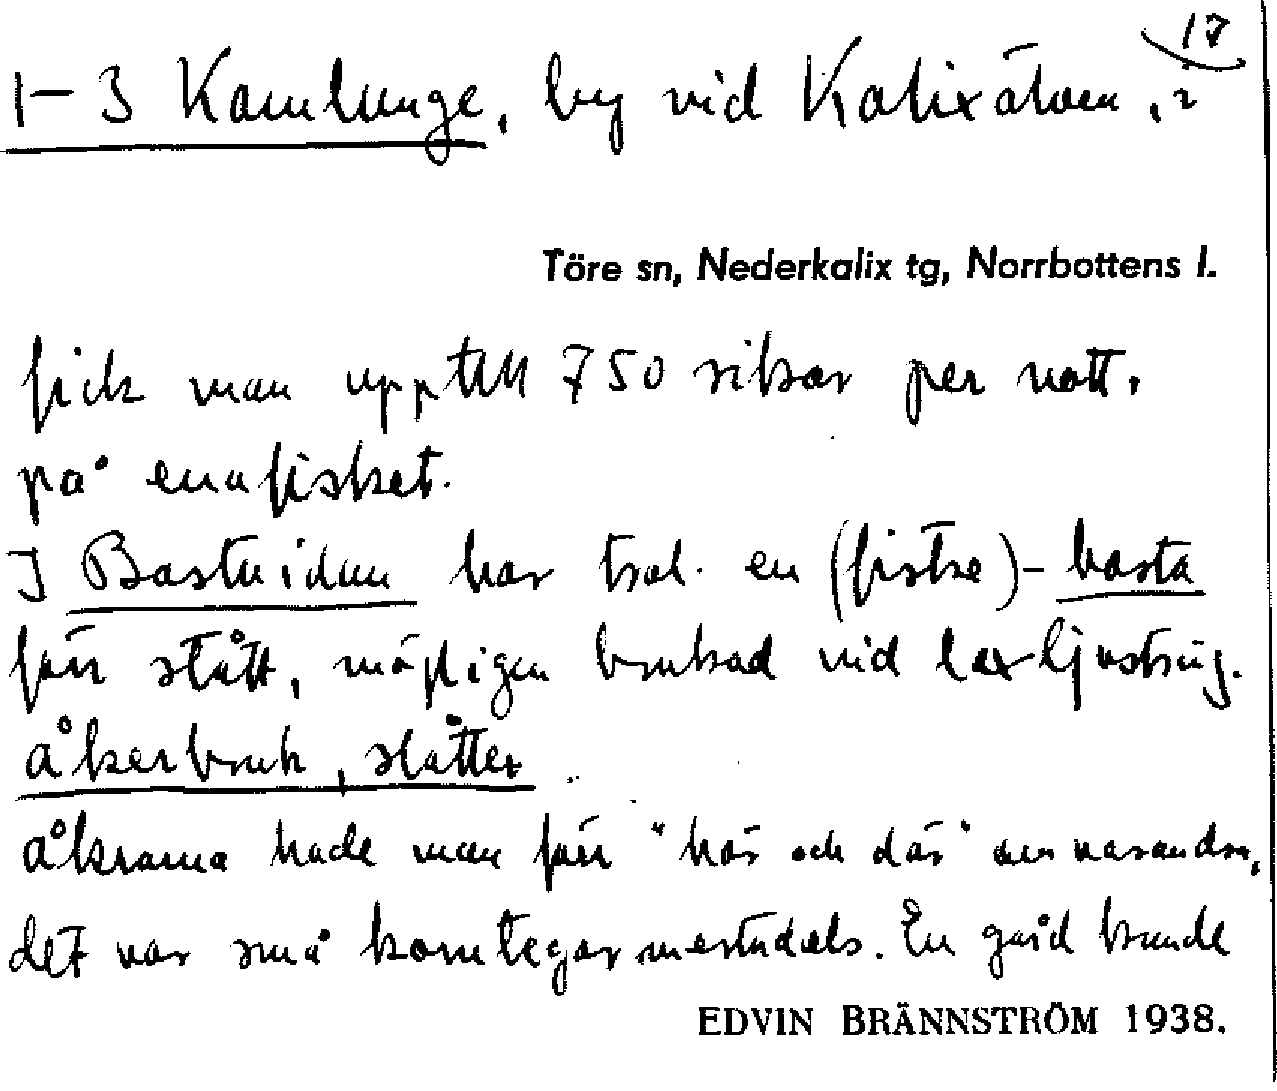 17
1-3 Kamlunge, by vid Kalixälven, i
Töre sn, Nederkalix tg, Norrbottens l.
fick man upptill 750 sikar per natt,
på enafisket.
I Bastuidan har trol. en (fiske)-basta
förr stått, möjligen brukad vid laxljustring.
åkerbruk, slåtter
åkrarna hade man förr "här och där" om varandra,
det var små korntegar mestadels. En gård kunde
EDVIN BRÄNNSTRÖM 1938.